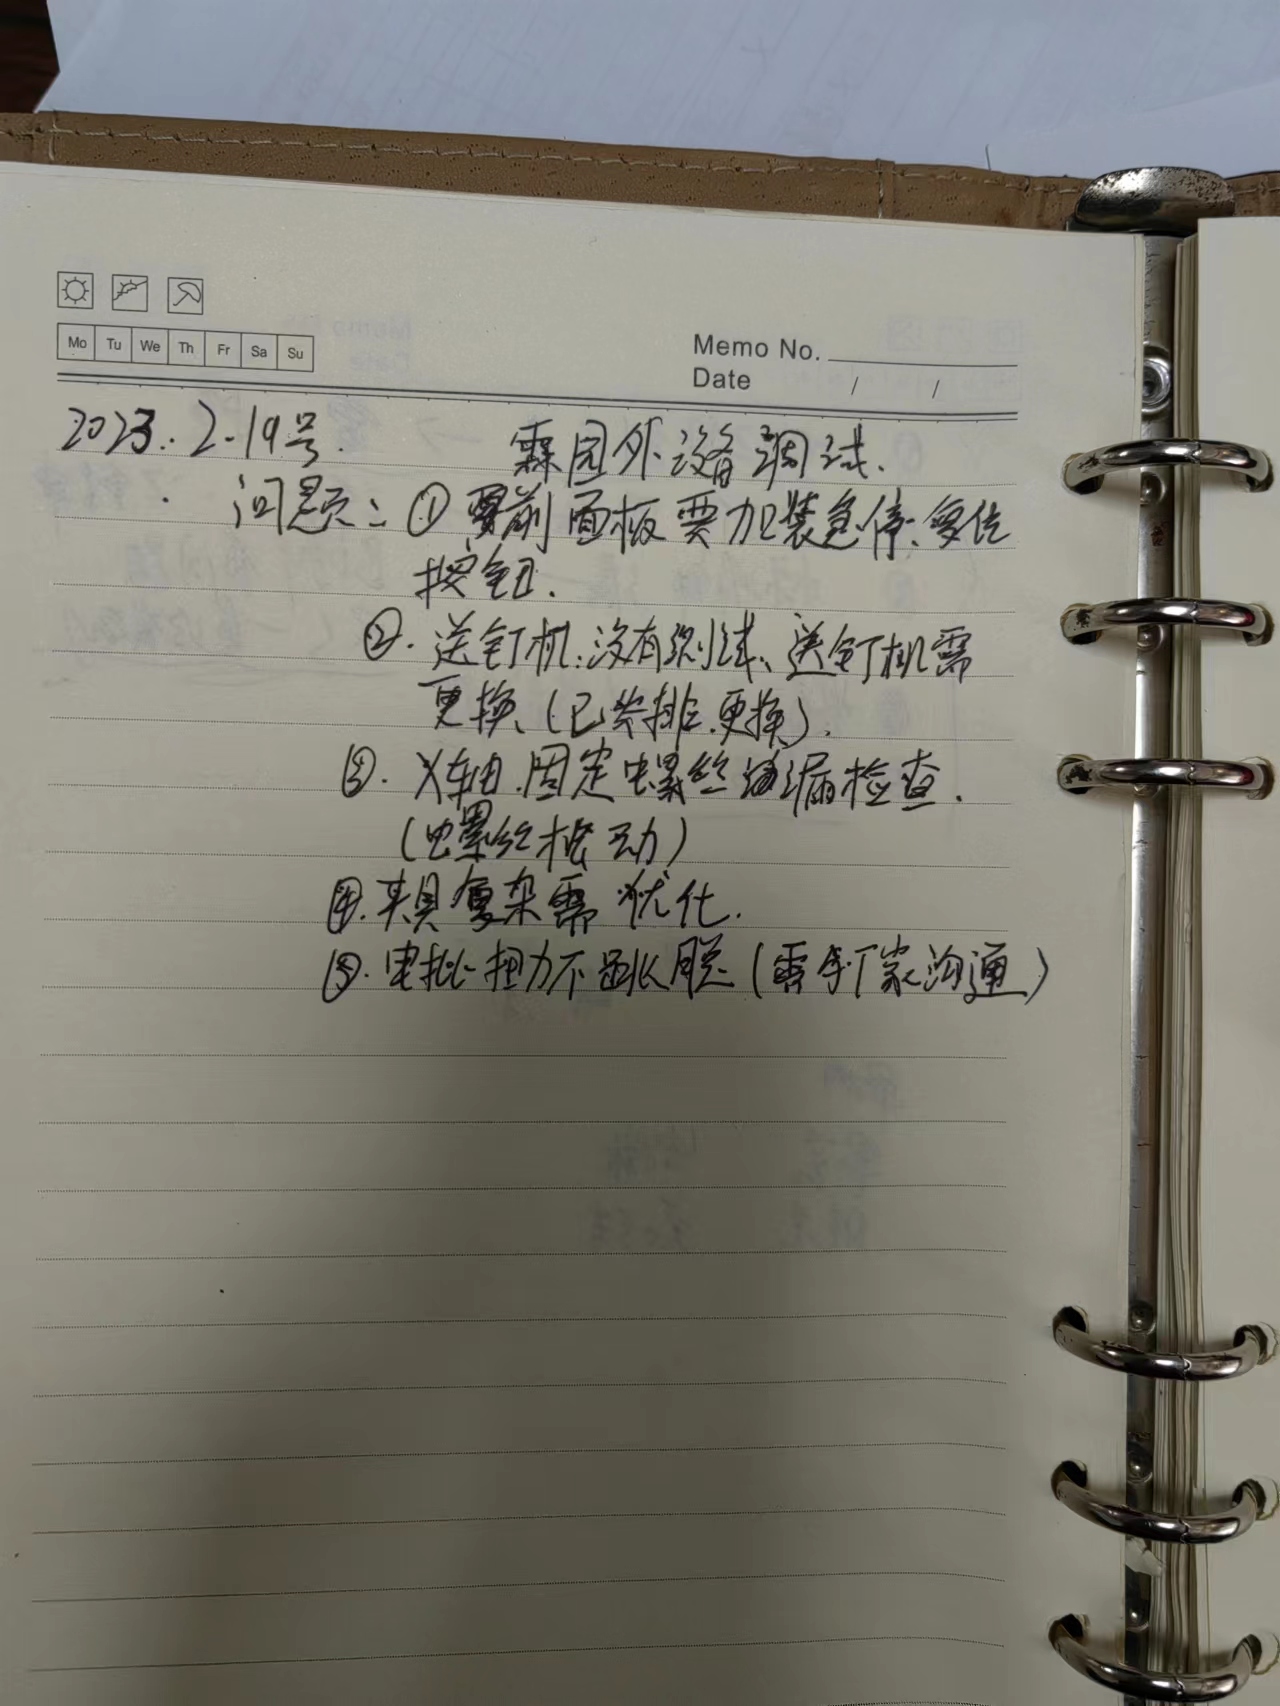 Mo Tu We Th Fr Sa Su
Memo No.
Date / /
2023.2.19号. 霖园外设备调试.
问题: ① 前面板要加装急停.复位
按钮.
②. 送钉机.没有测试、送钉机需
更换、(已安排.更换).
③. X轴.固定螺丝 漏检查.
(螺丝松动)
④. 夹具复杂需优化.
⑤. 电批扭力不跳脱 (需与厂家沟通)